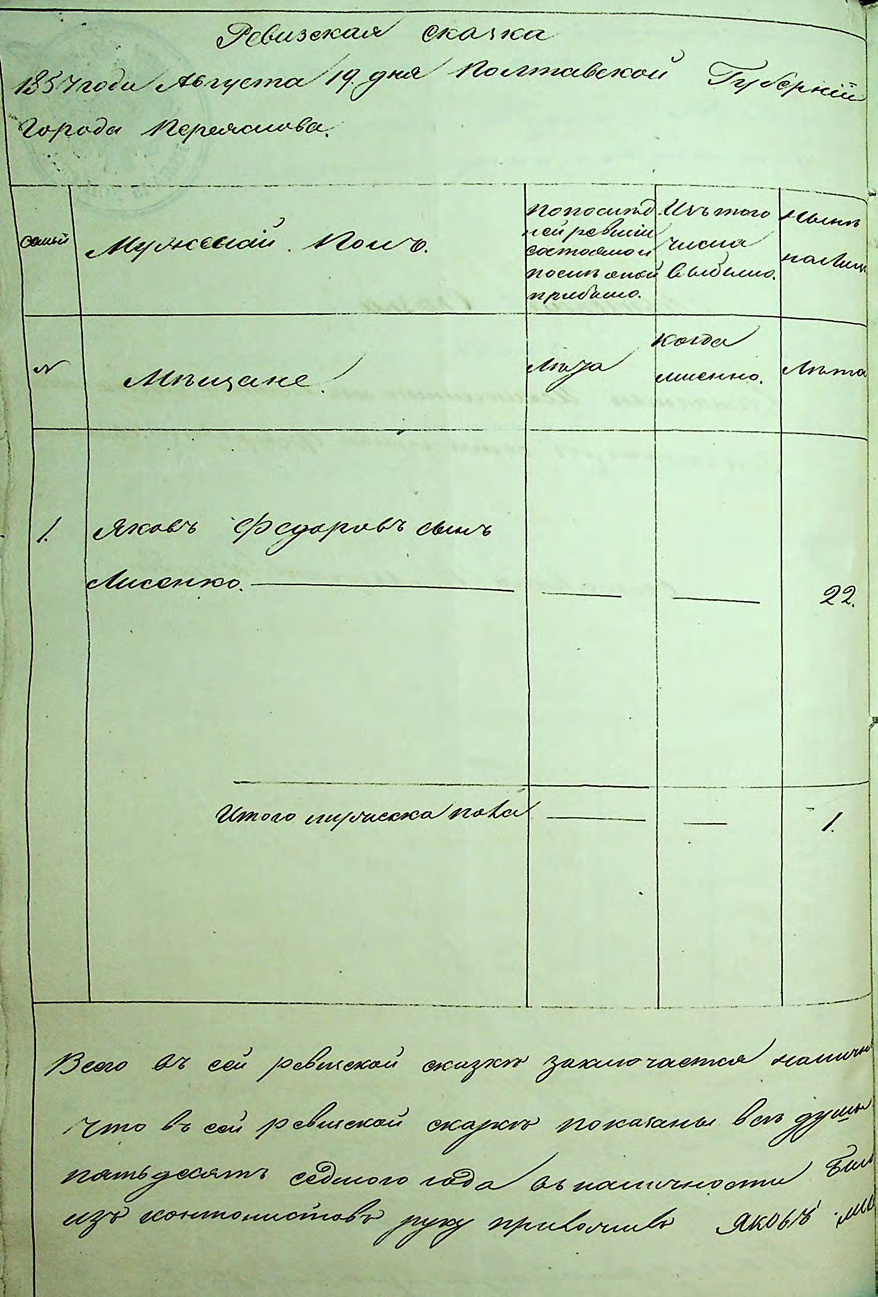 Ревизская сказка
1857 года Августа 19 дня Полтавской Губернии
Города Переяслова.
семьи
Мужеский Полъ.
По послѣд
ней ревизіи
состояло и
послѣ оной
прибыло.
Изъ того
числа
выбыло.
Нынѣ
на лицо
№
Мѣщане.
Лѣта
когда
именно.
Лѣта
1. Яковъ Федоровъ сынъ
Лисенко. 22.
Итого мужеска пола 1.
Всего въ сей ревиской сказкѣ заключается налич
Что въ сей ревиской скаскѣ показаны всѣ душы
пятьдесятъ седмого года въ наличности
изъ кантонистовъ руку приложилъ Яковъ